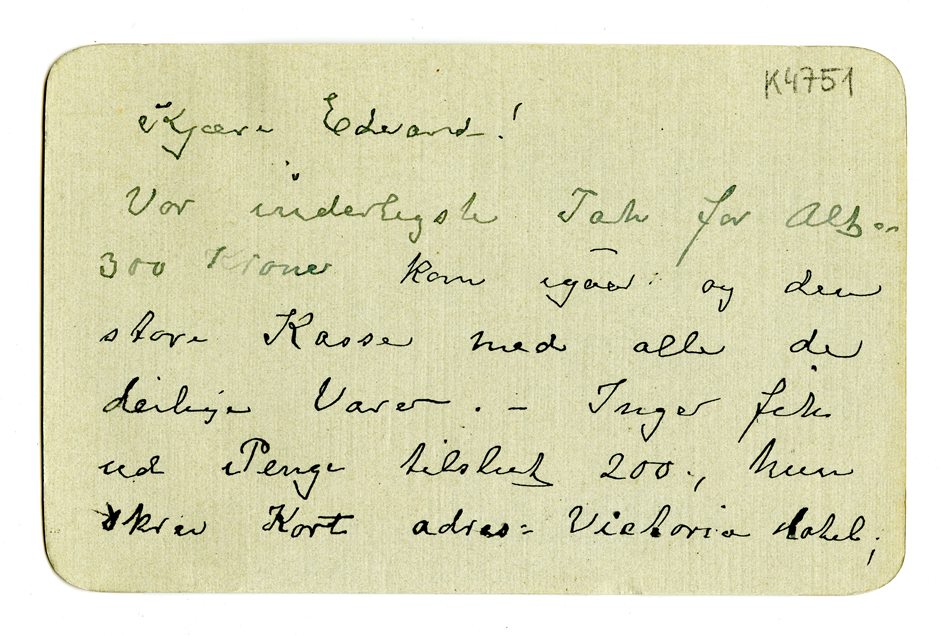 K4751
Kjære Edvard!
Vor inderligste Tak for Alt –
300 Kroner kom igaar og den
store Kasse med alle de
deilige Varer. – Inger fik
ud Penge tilslut 200., hun
skrev Kort adres= Victoria Hotel;